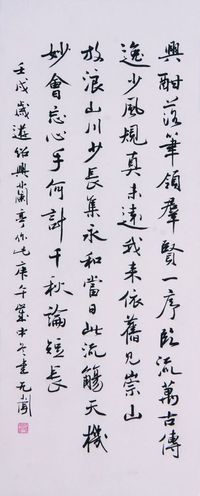 興酣落筆領羣賢一序臨流萬古傳
逸少風規真未遠我来依舊見崇山
放浪山川少長集永和當日此流觴天機
妙會忘心手何計千秋論短長
壬戌歲遊紹興蘭亭作 庚午歲中冬書